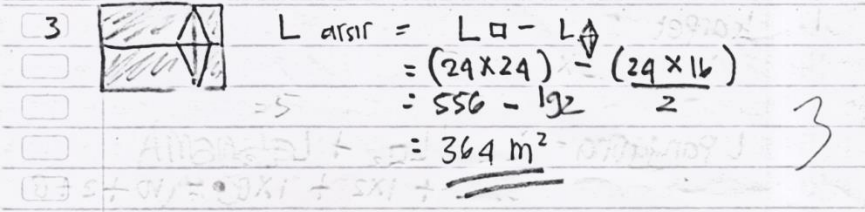 3 L arsir = L □ - L
= (24 x 24) - (24 x 16)
2
= 556 - 192
= 364 m²
3